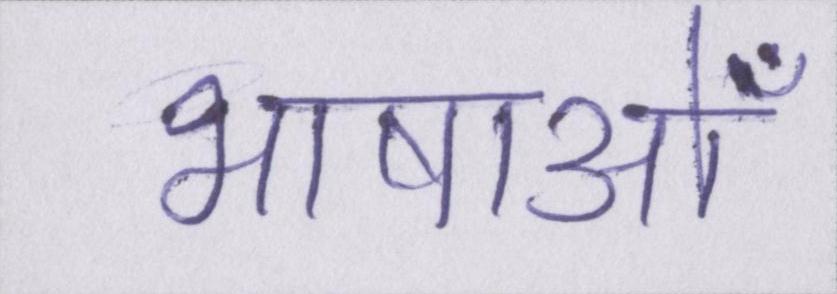 भाषाओँ